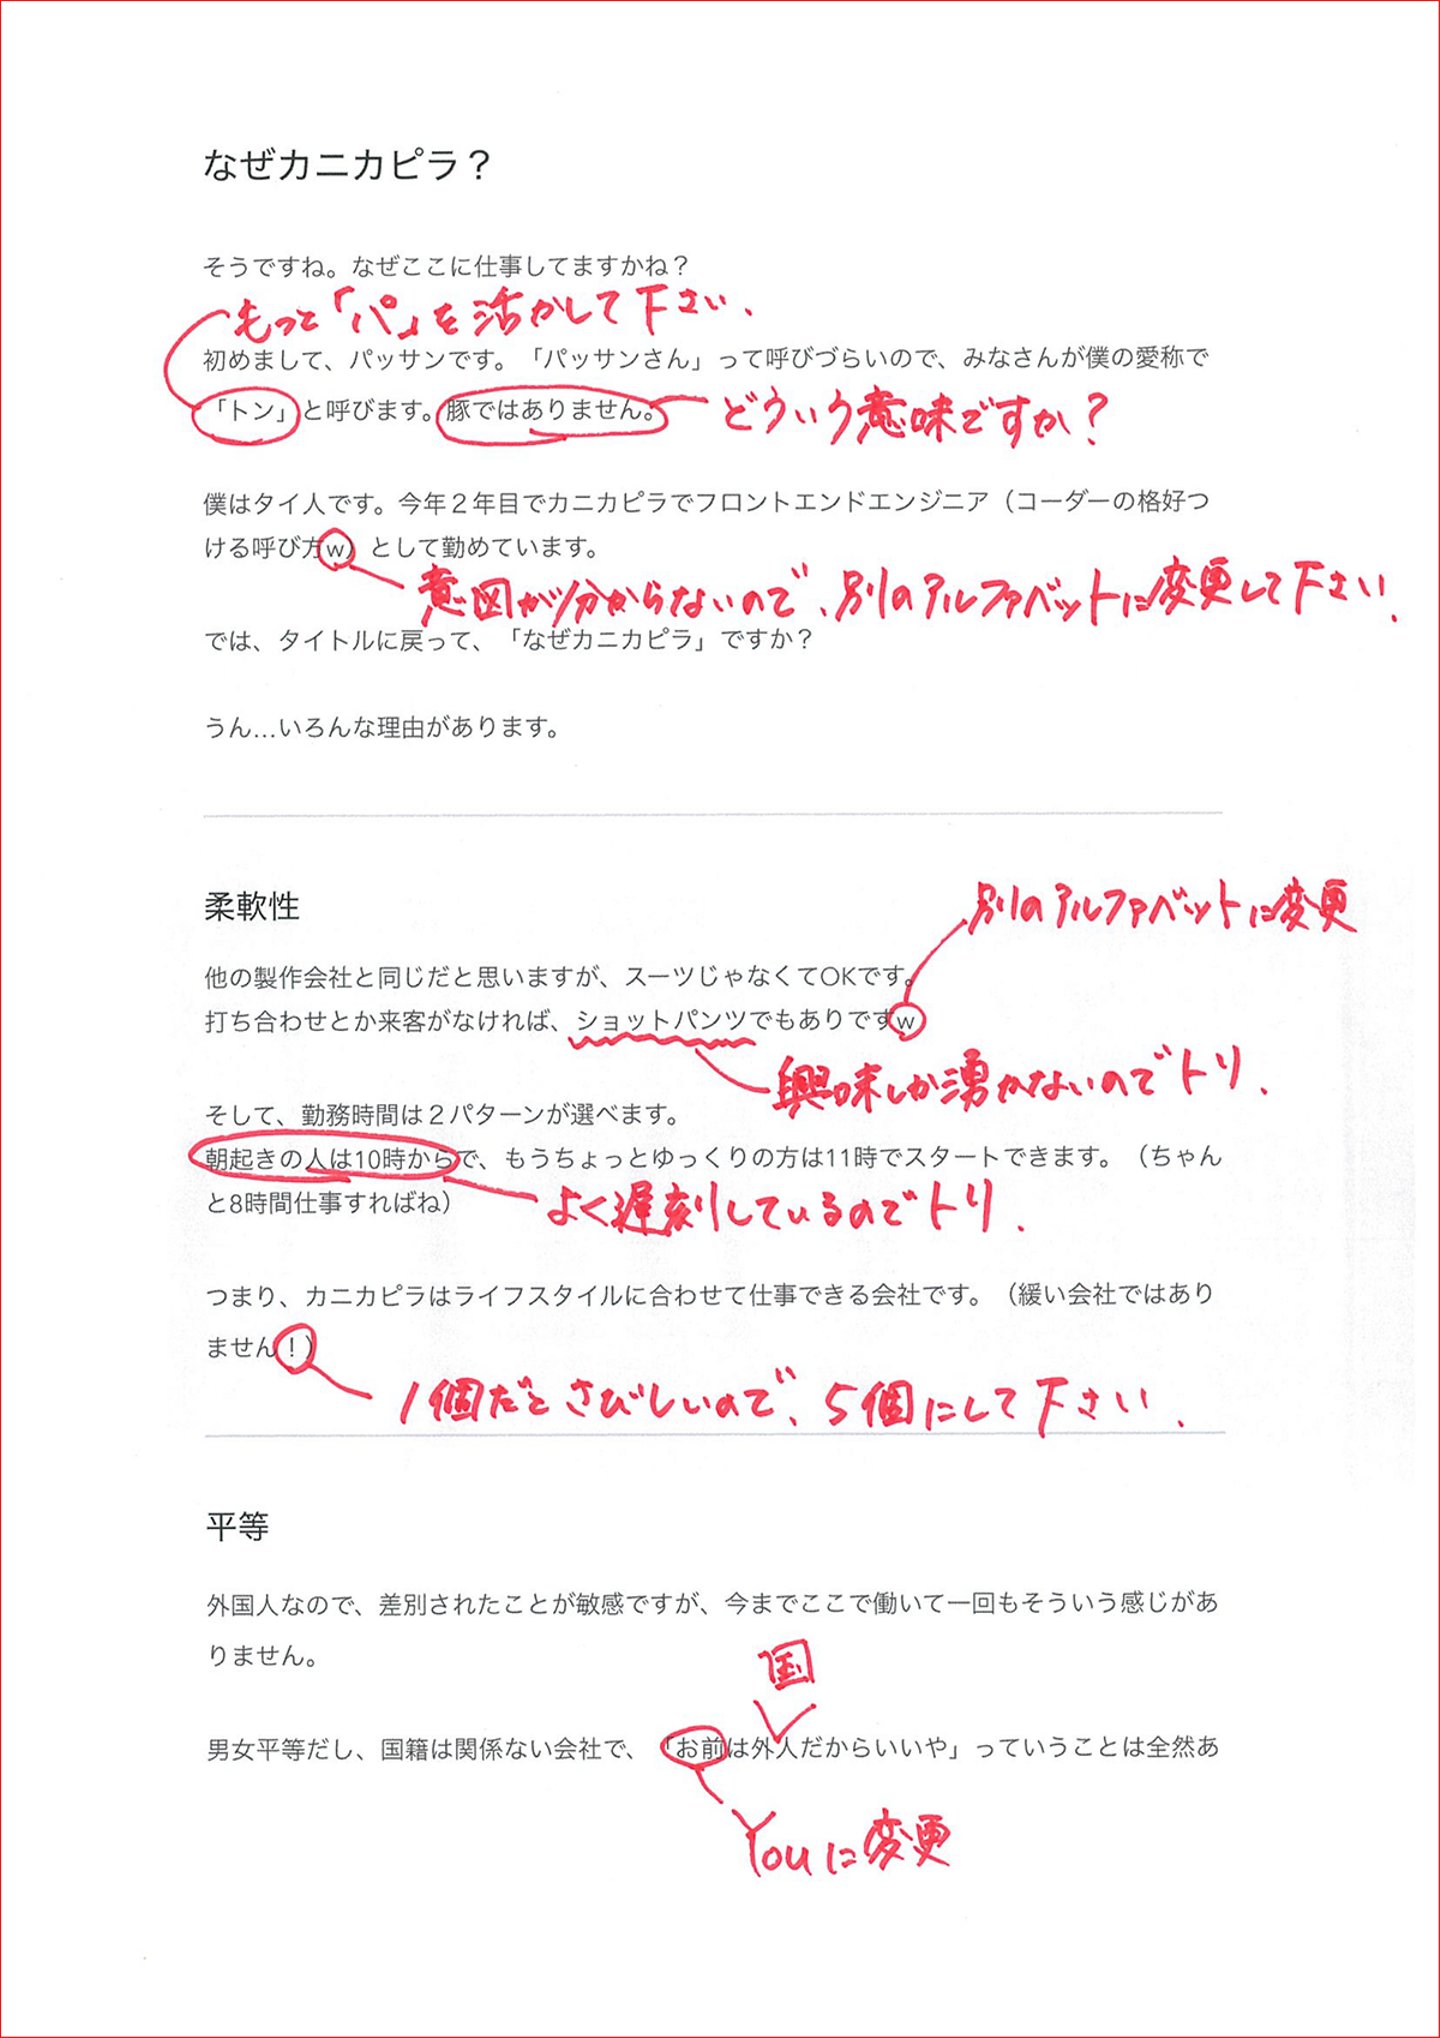 なぜカニカピラ？
そうですね。なぜここに仕事してますかね？
もっと「パ」を活かして下さい.
初めまして、パッサンです。「パッサンさん」って呼びづらいので、みなさんが僕の愛称で
「トン」と呼びます。豚ではありません。
どういう意味ですか？
僕はタイ人です。今年２年目でカニカピラでフロントエンドエンジニア（コーダーの格好つ
ける呼び方w）として勤めています。
意図が分からないので、別のアルファベットに変更して下さい.
では、タイトルに戻って、「なぜカニカピラ」ですか？
うん…いろんな理由があります。
柔軟性
別のアルファベットに変更
他の製作会社と同じだと思いますが、スーツじゃなくてOKです。
打ち合わせとか来客がなければ、ショットパンツでもありですw
興味しか湧かないのでトリ.
そして、勤務時間は２パターンが選べます。
朝起きの人は10時からで、もうちょっとゆっくりの方は11時でスタートできます。（ちゃん
と8時間仕事すればね）
よく遅刻しているのでトリ.
つまり、カニカピラはライフスタイルに合わせて仕事できる会社です。（緩い会社ではあり
ません！）
1個だとさびしいので、5個にして下さい.
平等
外国人なので、差別されたことが敏感ですが、今までここで働いて一回もそういう感じがあ
りません。
国
男女平等だし、国籍は関係ない会社で、「お前は外人だからいいや」っていうことは全然あ
Youに変更